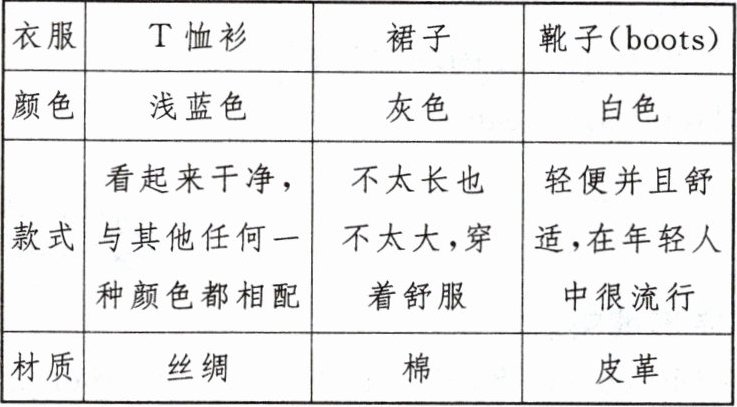 衣服 T恤衫 裙子 靴子(boots)
颜色 浅蓝色 灰色 白色
款式 看起来干净,与其他任何一种颜色都相配 不太长也不太大,穿着舒服 轻便并且舒适,在年轻人中很流行
材质 丝绸 棉 皮革